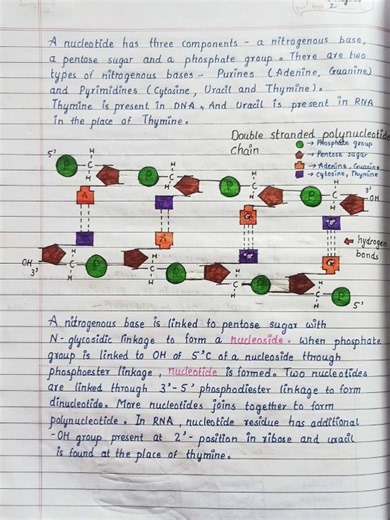 A nucleotide has three components - a nitrogenous base,
a pentose sugar and a phosphate group. There are two
types of nitrogenous bases - Purines (Adenine, Guanine)
and Pyrimidines (Cytosine, Uracil and Thymine).
Thymine is present in DNA, And Uracil is present in RNA
in the place of Thymine.
Double stranded polynucleotide
Chain
→ Phosphate group
→ Pentose sugar
→ Adenine, Guanine
→ Cytosine, Thymine
5'
OH
3'
hydrogen
bonds
OH
3'
5'
A nitrogenous base is linked to pentose sugar with
N-glycosidic linkage to form a nucleoside. When phosphate
group is linked to OH of 5'C of a nucleoside through
phosphoester linkage, nucleotide is formed. Two nucleotides
are linked through 3'-5' phosphodiester linkage to form
dinucleotide. More nucleotides joins together to form
polynucleotide. In RNA, nucleotide residue has additional
-OH group present at 2'- position in ribose and uracil
is found at the place of thymine.